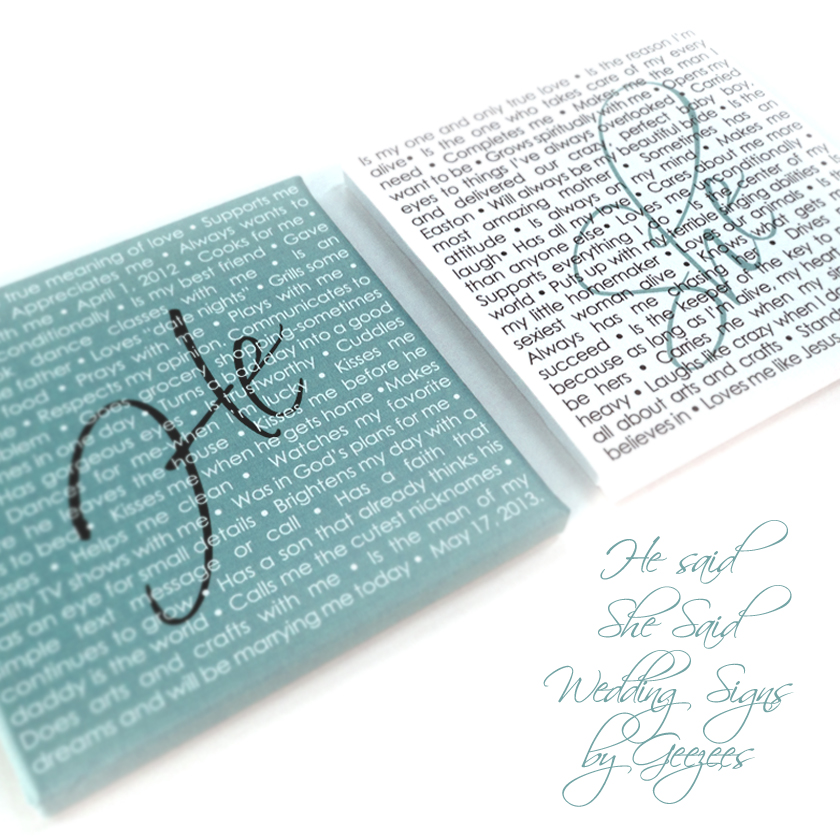 true meaning of love • Supports me
Appreciates me • Always wants to
with me • April 1, 2012 • Cooks for me •
conditionally • Is my best friend • Gave
dance classes with me • Is an
father • Loves "date nights" • Grills some
food • Plays with me • Plays with me •
• Respects my opinion. Communicates to
grocery shop and-sometimes
in one day • Turns a bad day into a good
Has gorgeous eyes • Is trustworthy • Cuddles
Dances for me when I'm lucky • Kisses me
he leaves the house • Kisses me before he
to bed • Kisses me when he gets home • Makes
• Helps me clean • Watches my favorite
TV shows with me • Was in God's plans for me •
an eye for small details • Brightens my day with a
simple text message or call • Has a faith that
continues to grow • Has a son that already thinks his
daddy is the world • Calls me the cutest nicknames •
Does arts and crafts with me • Is the man of my
dreams and will be marrying me today • May 17, 2013.
He
Is my one and only true love • Is the reason I'm
alive • Is the one who takes care of my every
need • Completes me • Makes me the man I
want to be • Grows spiritually with me • Opens my
eyes to things I've always overlooked • Carried
and delivered our crazy, perfect baby boy,
Easton • Will always be my beautiful bride • Is the
most amazing mother • Sometimes has an
attitude • Is always on my mind • Makes me
laugh • Has all my love • Cares about me more
than anyone else • Loves me unconditionally •
Supports everything I do • Is the center of my
world • Puts up with my terrible singing abilities • Is
my little homemaker • Loves animals • Is the
sexiest woman alive • Knows what gets m
Always has me chasing her • Drives
succeed • Is the keeper of the key to
because as long as I'm alive, my hear
be hers • Carries me when my
heavy • Laughs like crazy when I
all about arts and crafts • Stan
believes in • Loves me like Jesus
She
He said
She Said
Wedding Signs
by Geezees